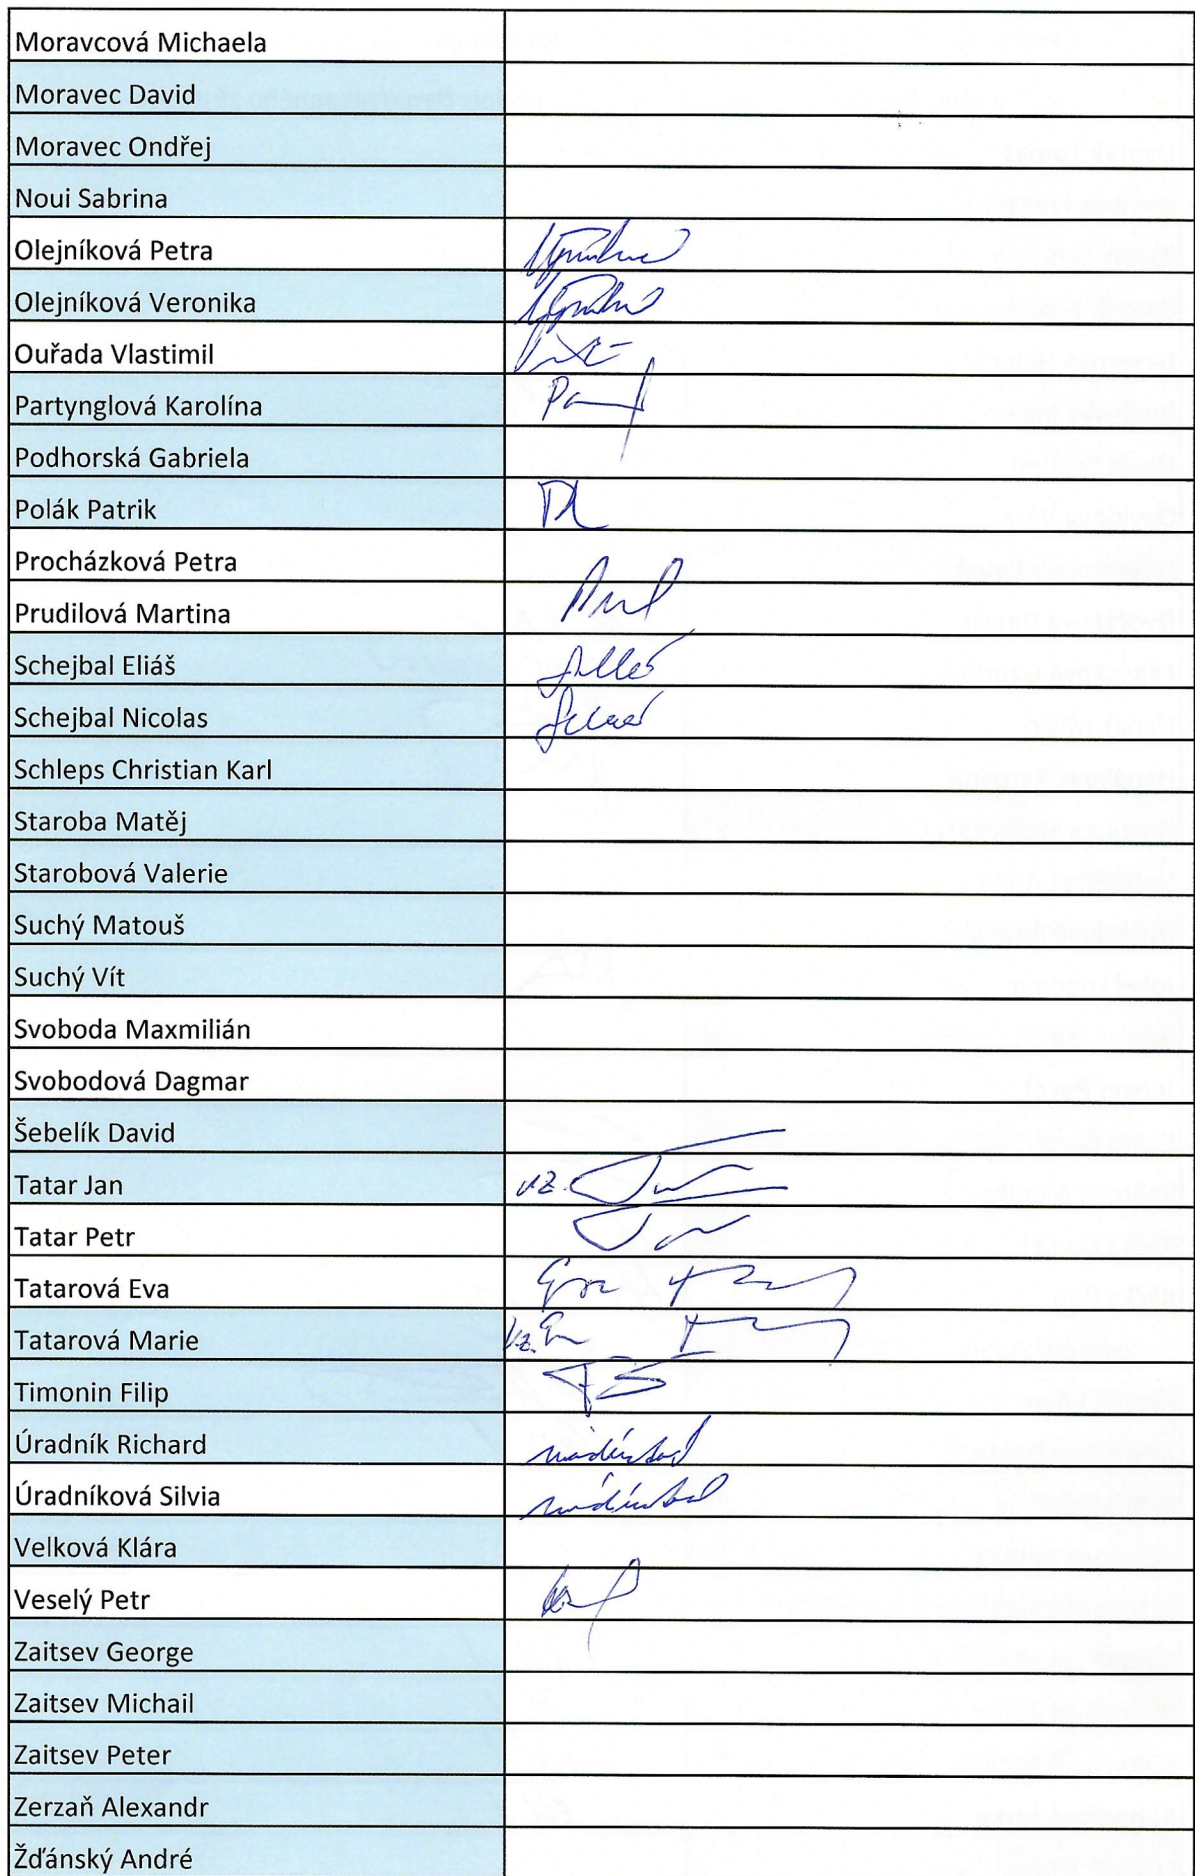 Moravcová Michaela
Moravec David
Moravec Ondřej
Noui Sabrina
Olejníková Petra
Olejníková Veronika
Ouřada Vlastimil
Partynglová Karolína
Podhorská Gabriela
Polák Patrik
Procházková Petra
Prudilová Martina
Schejbal Eliáš
Schejbal Nicolas
Schleps Christian Karl
Staroba Matěj
Starobová Valerie
Suchý Matouš
Suchý Vít
Svoboda Maxmilián
Svobodová Dagmar
Šebelík David
Tatar Jan vz.
Tatar Petr
Tatarová Eva
Tatarová Marie vz.
Timonin Filip
Úradník Richard
Úradníková Silvia
Velková Klára
Veselý Petr
Zaitsev George
Zaitsev Michail
Zaitsev Peter
Zerzaň Alexandr
Žďánský André